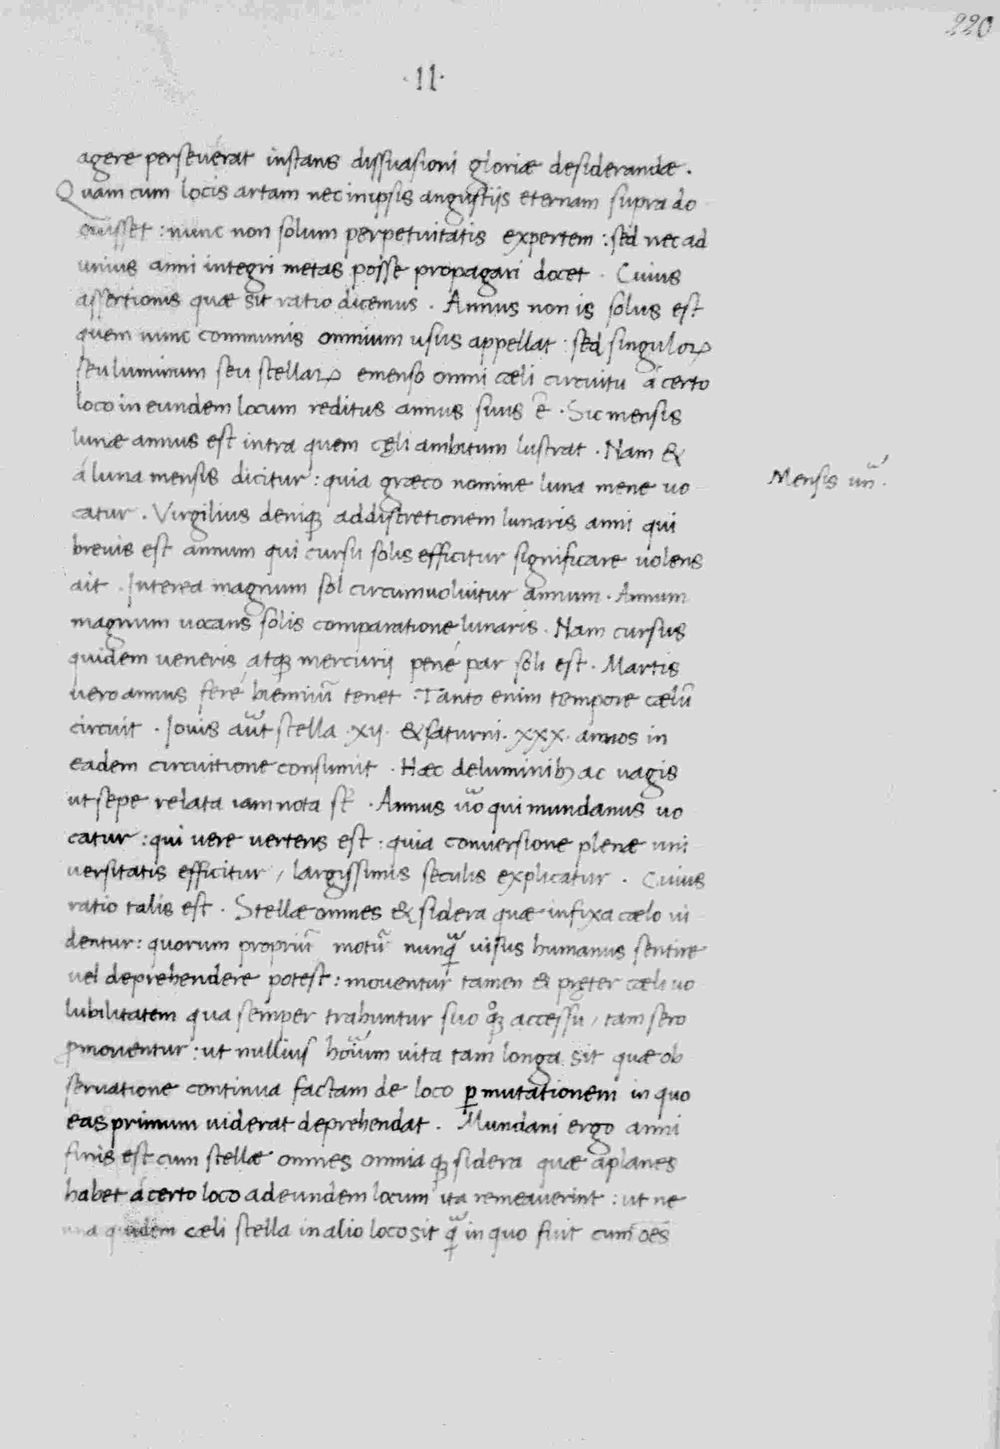 220
·II·
agere perseuerat instans dissuasioni gloriæ desiderandæ.
Quam cum locis artam nec in ipsis angustijs eternam supra do
cuisset : nunc non solum perpetuitatis expertem : sed nec ad
unius anni integri metas posse propagari docet . Cuius
assertionis quæ sit ratio dicemus . Annus non is solus est
quem nunc communis omnium usus appellat : sed singuloꝝ
seu luminum seu stellaꝝ emenso omni cæli circuitu á certo
loco in eundem locum reditus annus suus ē . Sic mensis
lunæ annus est intra quem cęli ambitum lustrat . Nam &
á luna mensis dicitur : quia græco nomine luna mene uo
Mensis uñ.
catur . Virgilius deniqꝫ ad discretionem lunaris anni qui
breuis est annum qui cursu solis efficitur significare uolens
ait . Interea magnum sol circumuoluitur annum . Annum
magnum uocans solis comparatione lunaris . Nam cursus
quidem ueneris atqꝫ mercurij pené par soli est . Martis
uero annus feré bienniū tenet . Tanto enim tempore cælū
circuit . Iouis aūt stella .xij. & saturni .xxx. annos in
eadem circuitione consumit . Hæc de luminibꝫ ac uagis
ut sepe relata iam nota sṫ . Annus ūo qui mundanus uo
catur : qui uere uertens est : quia conuersione plenæ uni
uersitatis efficitur / largissimis seculis explicatur . Cuius
ratio talis est . Stellæ omnes & sidera quæ infixa cælo ui
dentur : quorum propriū motū nunq̄ uisus humanus sentire
uel deprehendere potest : mouentur tamen & pręter cæli uo
lubilitatem qua semper trahuntur suo qͦꝫ accessu / tam sero
ꝓmouentur : ut nullius hōium uita tam longa sit quæ ob
seruatione continua factam de loco ꝑmutationem in quo
eas primum uiderat deprehendat . Mundani ergo anni
finis est cum stellæ omnes omnia qꝫ sidera quæ aplanes
habet á certo loco ad eundem locum ita remeauerint : ut ne
una quidem cæli stella in alio loco sit q̄ in quo fuit cum oēs